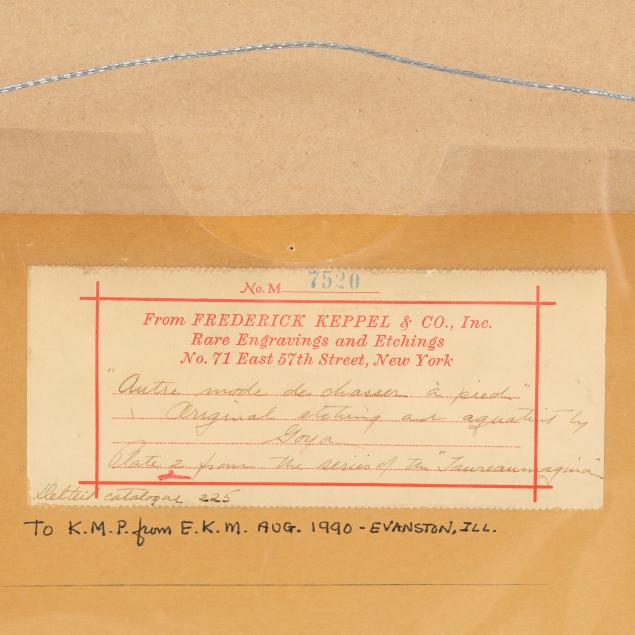 No. M 7520
From FREDERICK KEPPEL & CO., Inc.
Rare Engravings and Etchings
No. 71 East 57th Street, New York
"Autre mode de chasser à pied"
Original etching and aquatint by
Goya
Plate 2 from the series of the "Taureaumagina"
Delteil catalogue 225
TO K.M.P. from E.K.M. AUG. 1990 - EVANSTON, ILL.